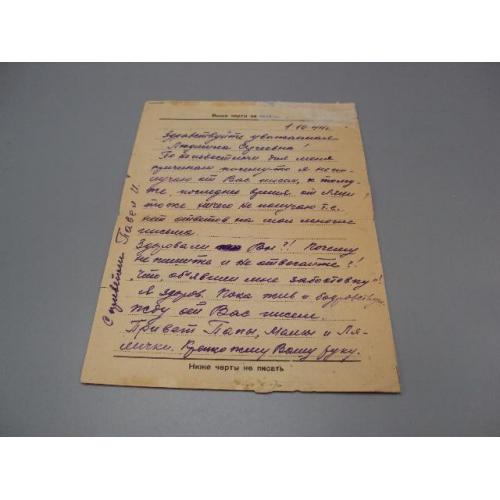 Выше черты не писать
1.10.44 г.
Здравствуйте уважаемая
Людмила Сергеевна!
По неизвестным для меня
причинам почему-то я не по-
лучаю от Вас писем, к тому-
же, последнее время от Ляли
тоже ничего не получаю т.е.
нет ответов на мои многие
письма.
Здоровали Вы?! Почему
не пишите и не отвечаете?!
Что, объявили мне забастовку"!
Я здоров. Пока жив и бодрствую
Жду от Вас писем.
Привет Папы, Мамы и Ля-
лички. Крепко жму Вашу руку.
Ниже черты не писать
С приветом Павел И.